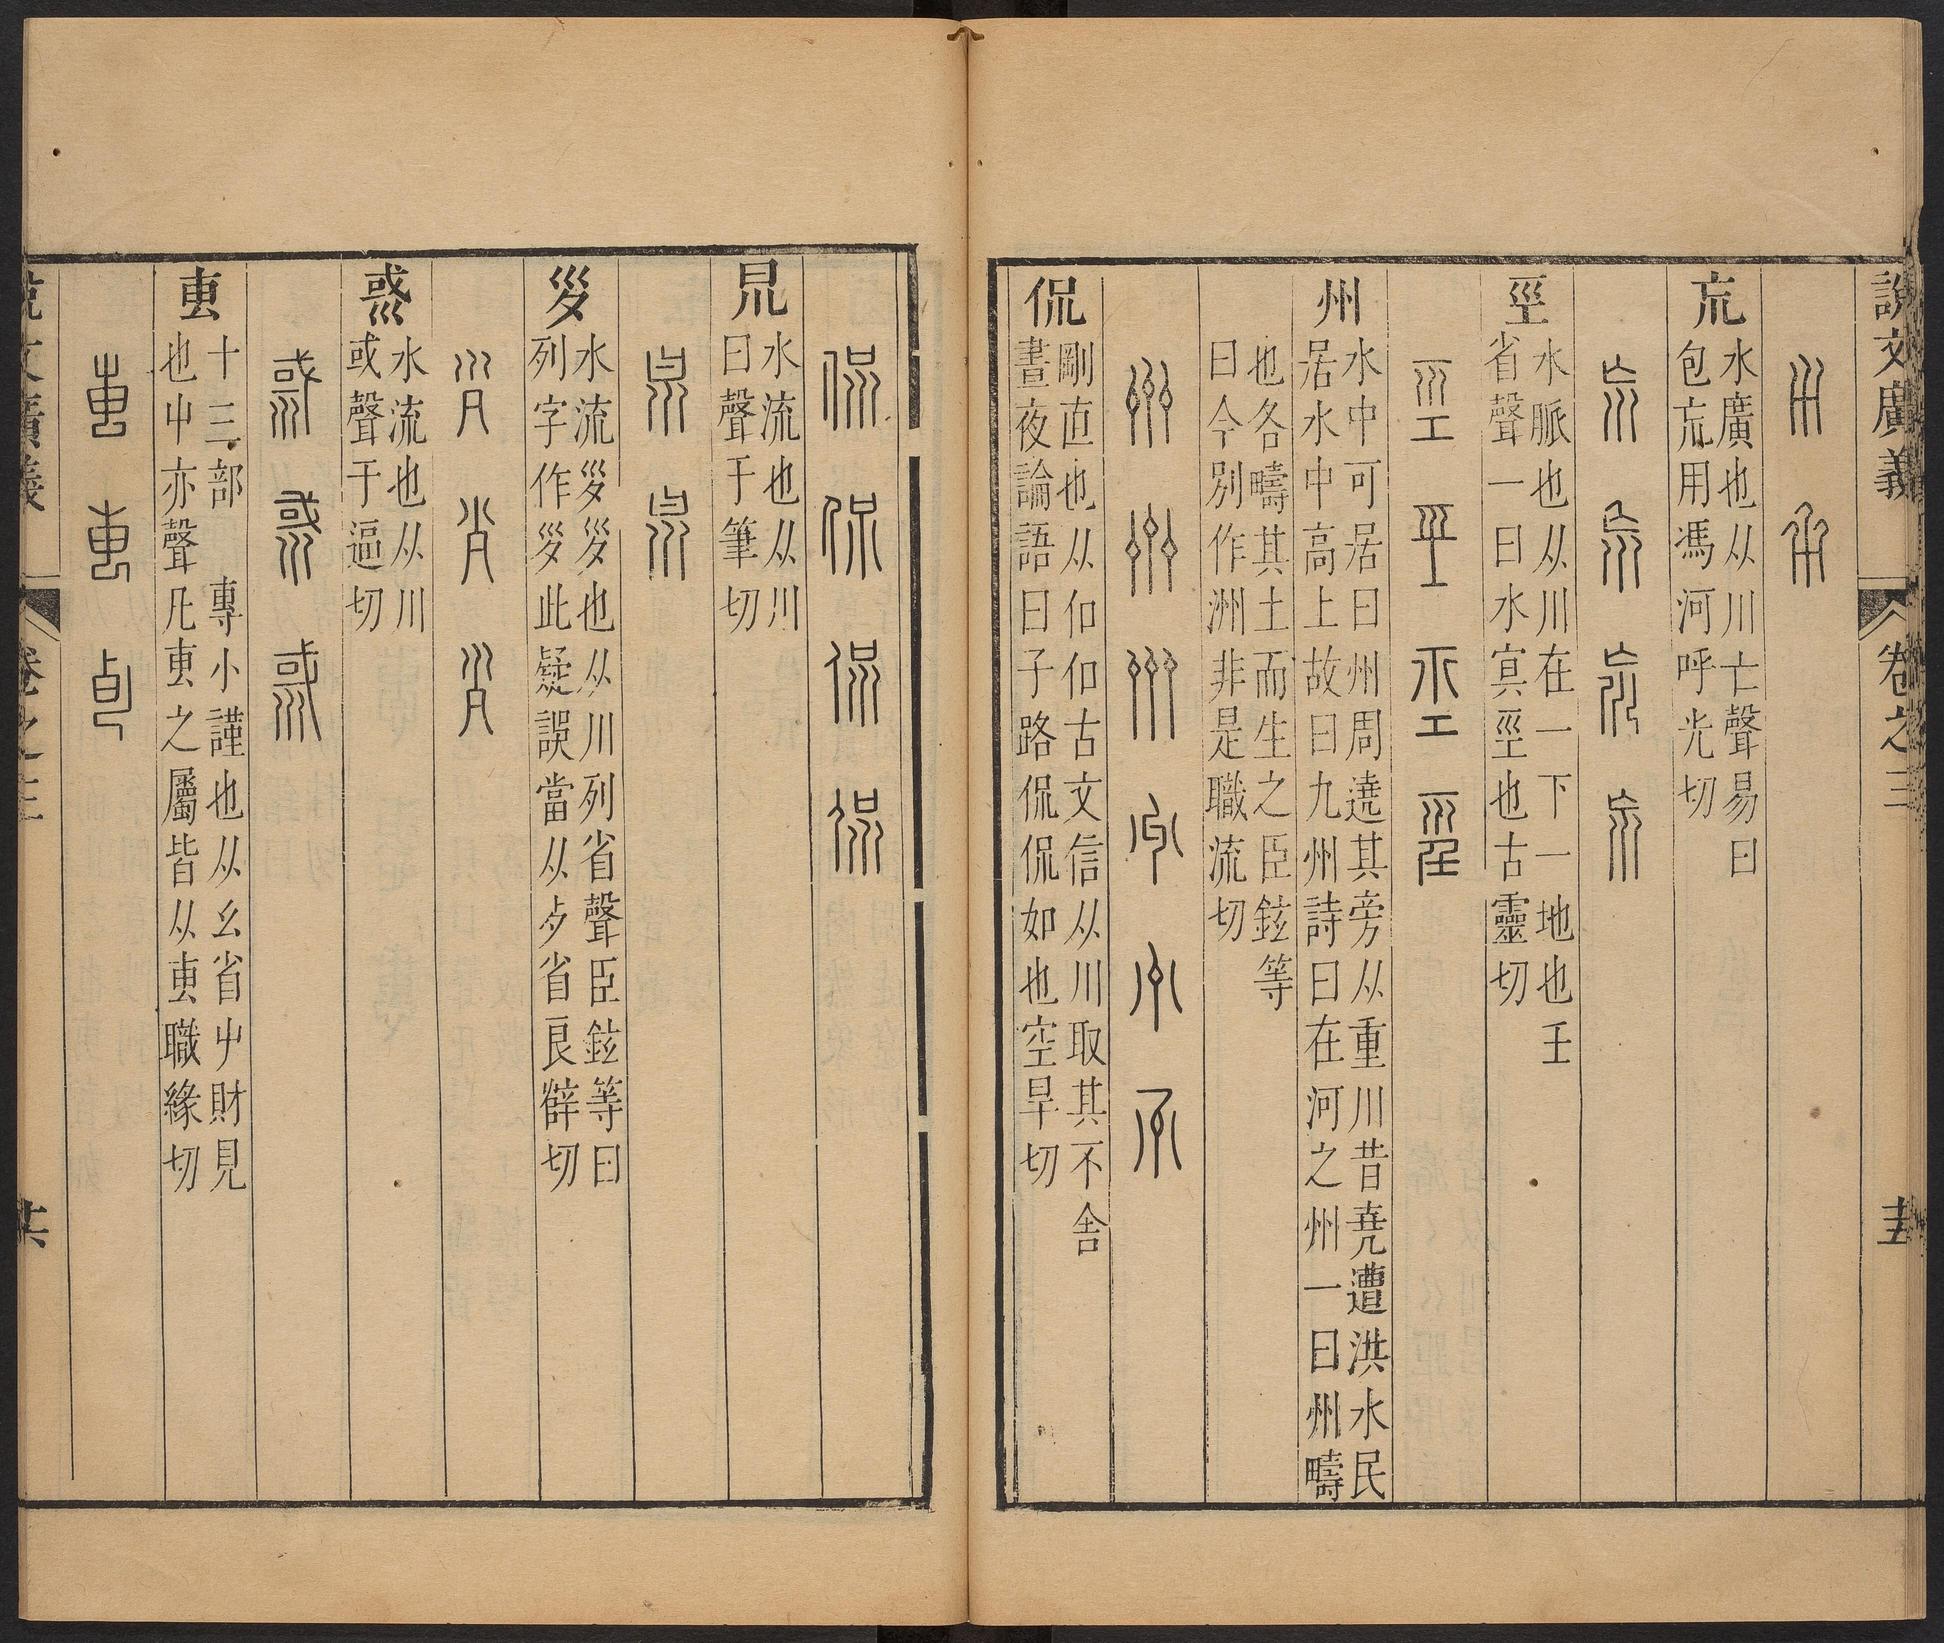 說文廣義
卷之三
巟
水廣也从川亡聲易曰
包巟用馮河呼光切
巠
水脈也从川在一下一地也壬
省聲一曰水冥巠也古靈切
州
水中可居曰州周遶其旁从重川昔堯遭洪水民
居水中高上故曰九州詩曰在河之州一曰州疇
也各疇其土而生之臣鉉等
曰今別作洲非是職流切
侃
剛直也从㐰㐰古文信从川取其不舍
晝夜論語曰子路侃侃如也空旱切
𣆀
水流也从川
曰聲于筆切
𡿪
水流𡿪𡿪也从川列省聲臣鉉等曰
列字作𡿪𡿪此疑誤當从歺省良辥切
惑
水流也从川
或聲于逼切
叀
十三部 專小謹也从幺省屮財見
也屮亦聲凡叀之屬皆从叀職緣切
說文廣義
卷之三